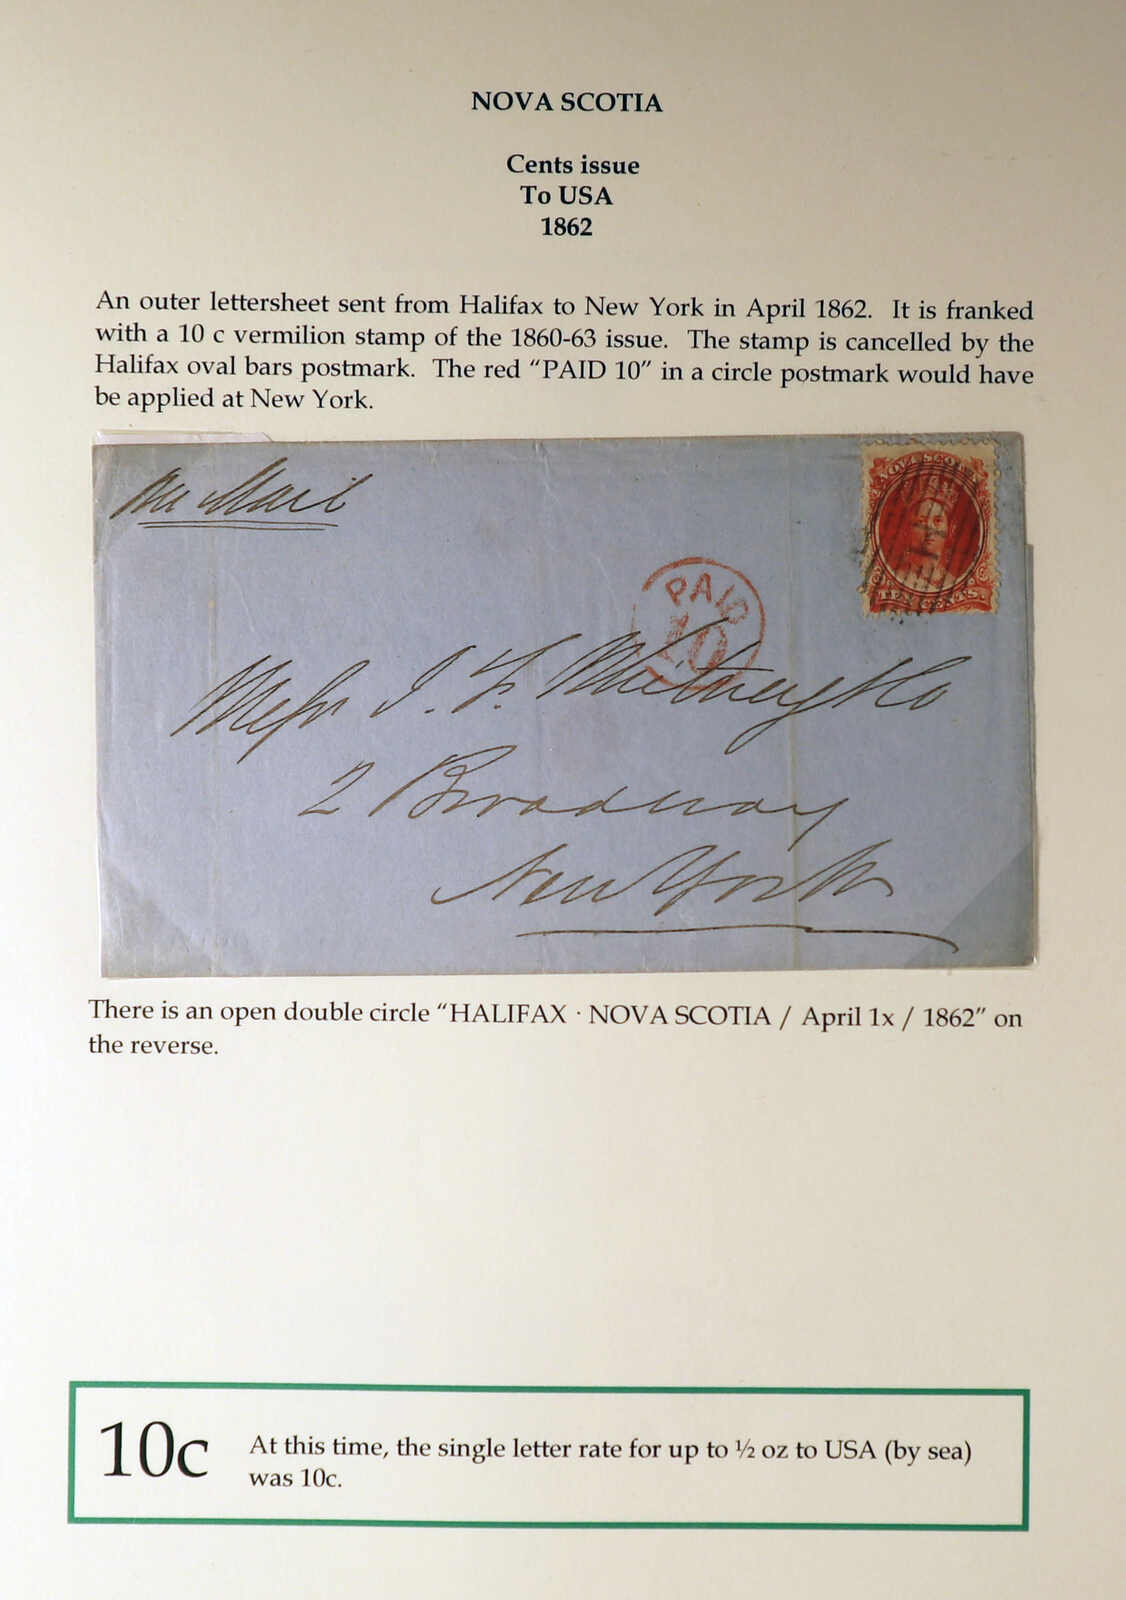 NOVA SCOTIA
Cents issue
To USA
1862
An outer lettersheet sent from Halifax to New York in April 1862. It is franked
with a 10 c vermilion stamp of the 1860-63 issue. The stamp is cancelled by the
Halifax oval bars postmark. The red “PAID 10” in a circle postmark would have
be applied at New York.
Mail
NOVA SCOTIA
TEN CENTS.
PAID
10
Messrs J. F. Whitney & Co
2 Broadway
New York
There is an open double circle “HALIFAX · NOVA SCOTIA / April 1x / 1862” on
the reverse.
10c
At this time, the single letter rate for up to ½ oz to USA (by sea)
was 10c.